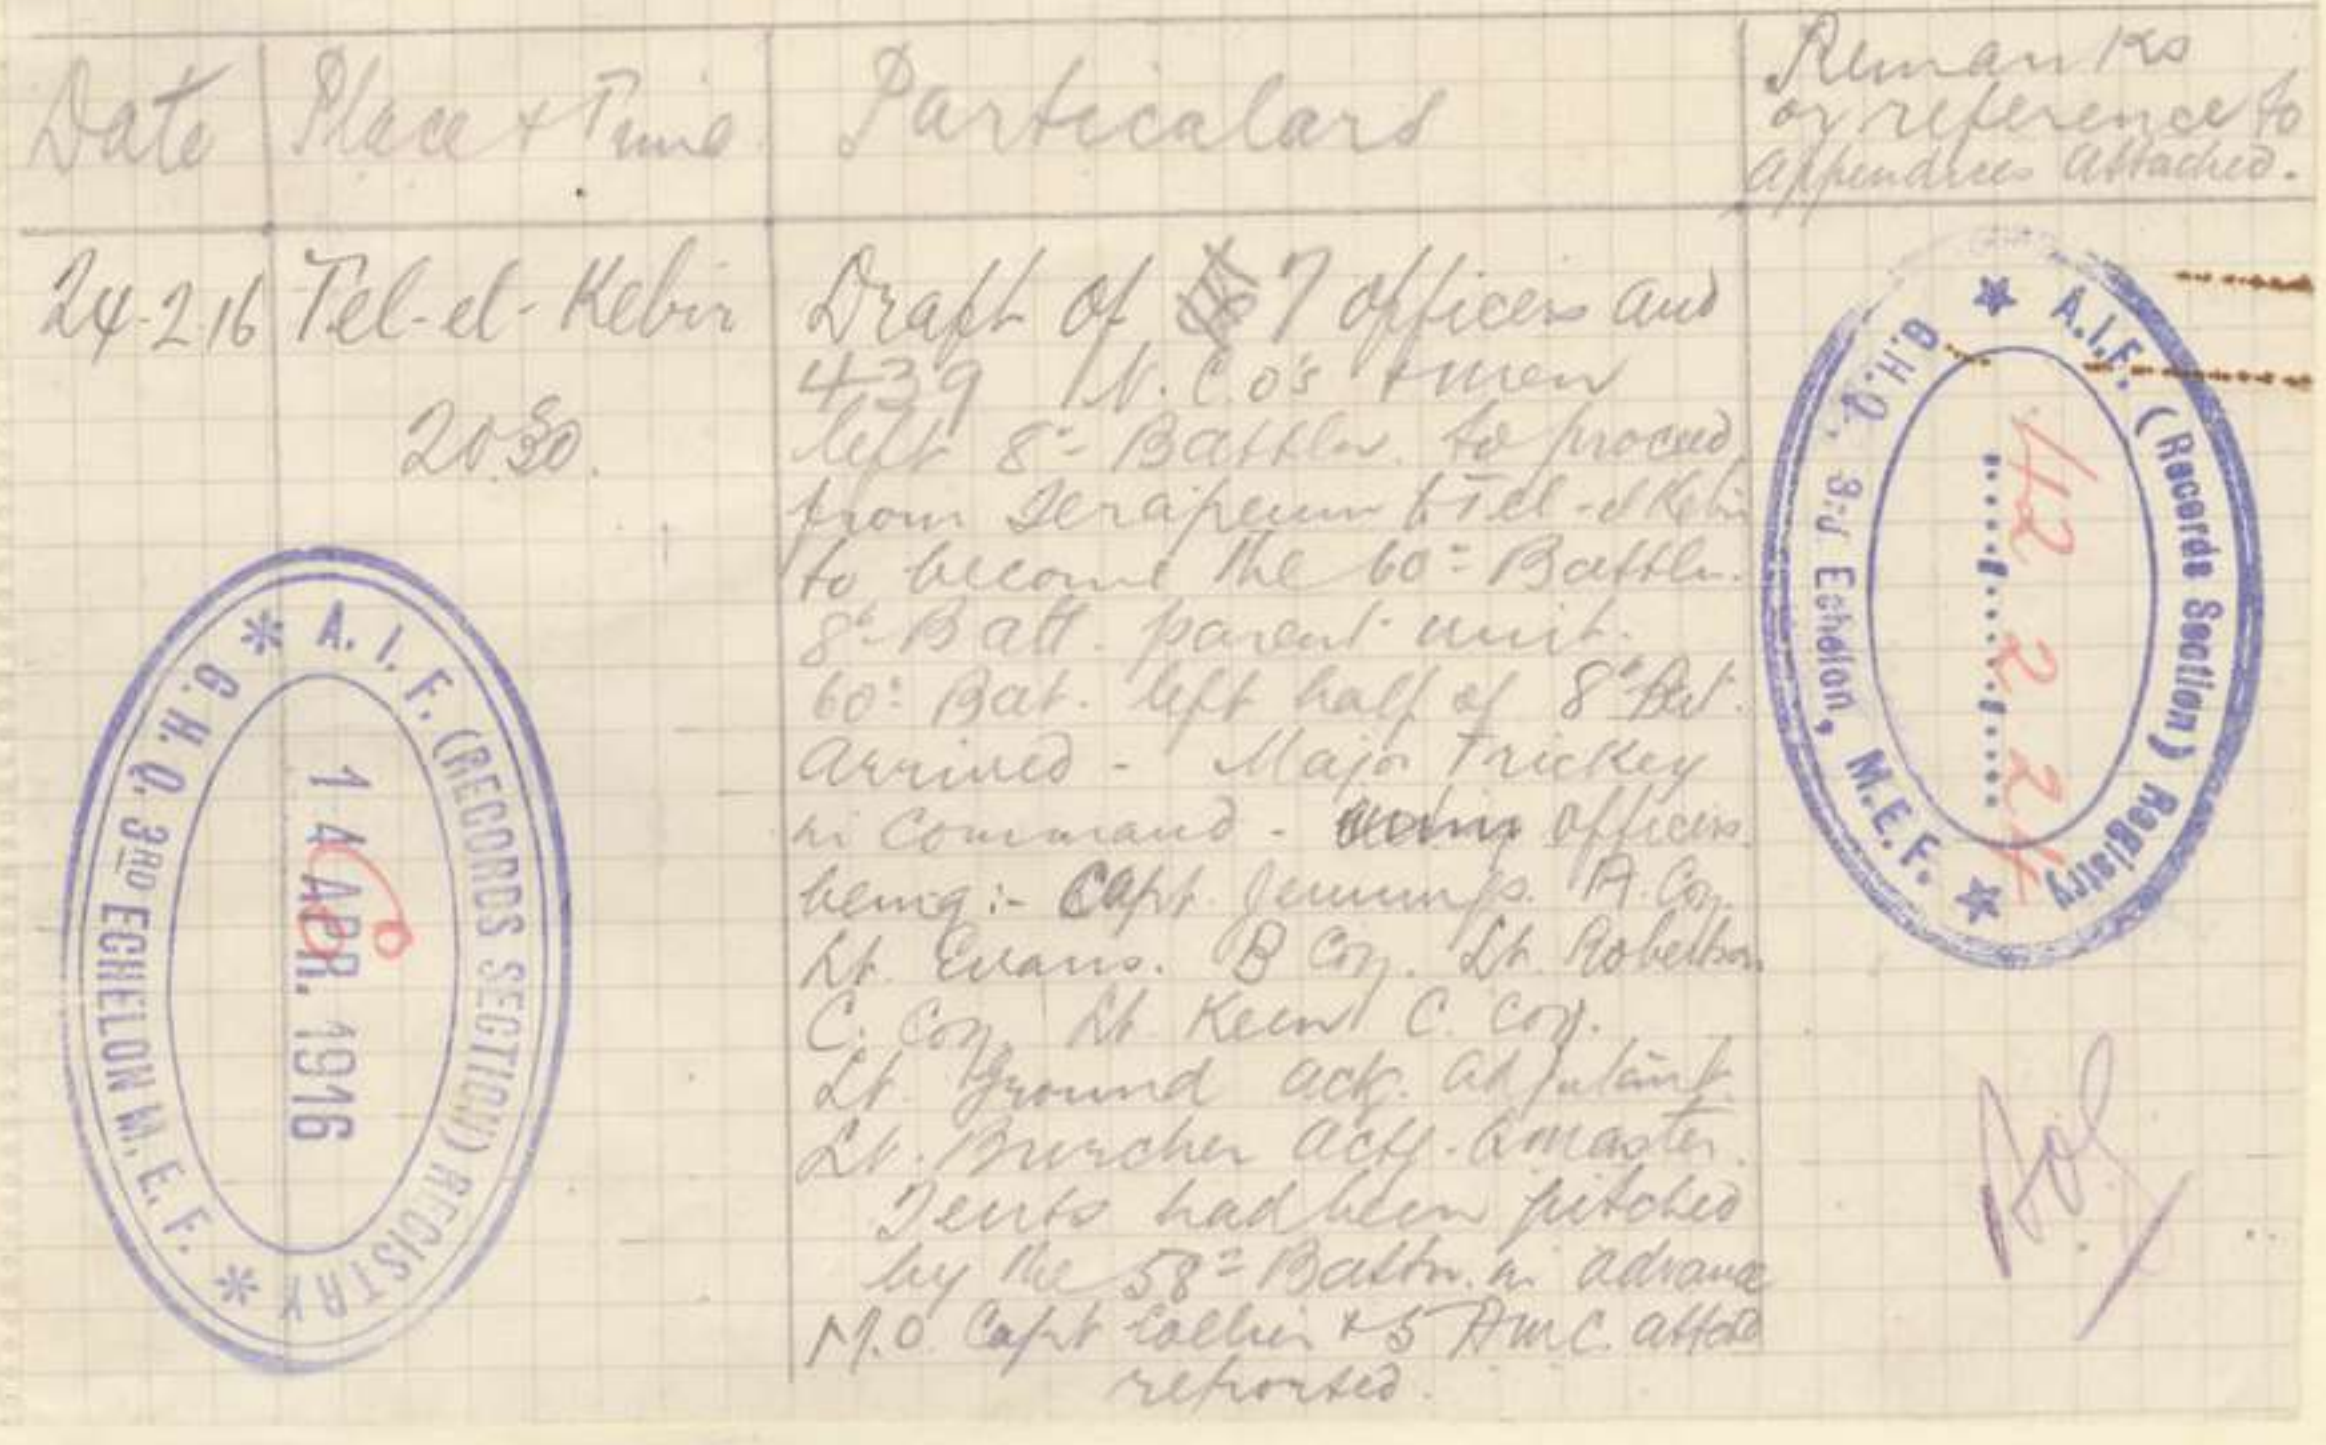 Date
Place + Time
Particulars
Remarks
or reference to
appendices attached.
24-2-16
Tel-el-Kebir
20 30.
Draft of 7 officers and
439 N.C.O's + men
left 8th Battln. to proceed
from Serapeum to Tel-el Kebir
to become the 60th Battln.
8th Batt. parent unit.
60th Bat. left half of 8th Bat.
arrived - Major Trickey
in Command - officers
being :- Capt. Jennings. A. Coy.
Lt. Evans. B Coy. Lt. Robertson
C. Coy. Lt. C. Coy.
Lt. Ground actg. adjutant.
Lt. Burcher actg. Qmaster.
Tents had been pitched
by the 58th Battn. in advance
M.O. Capt Collier + 5 AMC. attchd
reported.
A.I.F. (RECORDS SECTION) REGISTRY
G.H.Q. 3RD ECHELON M.E.F.
14 APR. 1916
A.I.F. (Records Section) Registry
G.H.Q., 3rd Echelon, M.E.F.
42 2 24